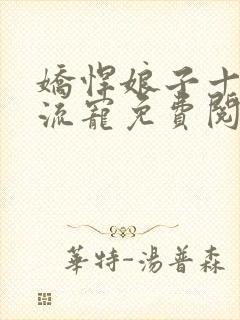 嬌悍娘子十
流寵免費閱
華特-湯普森